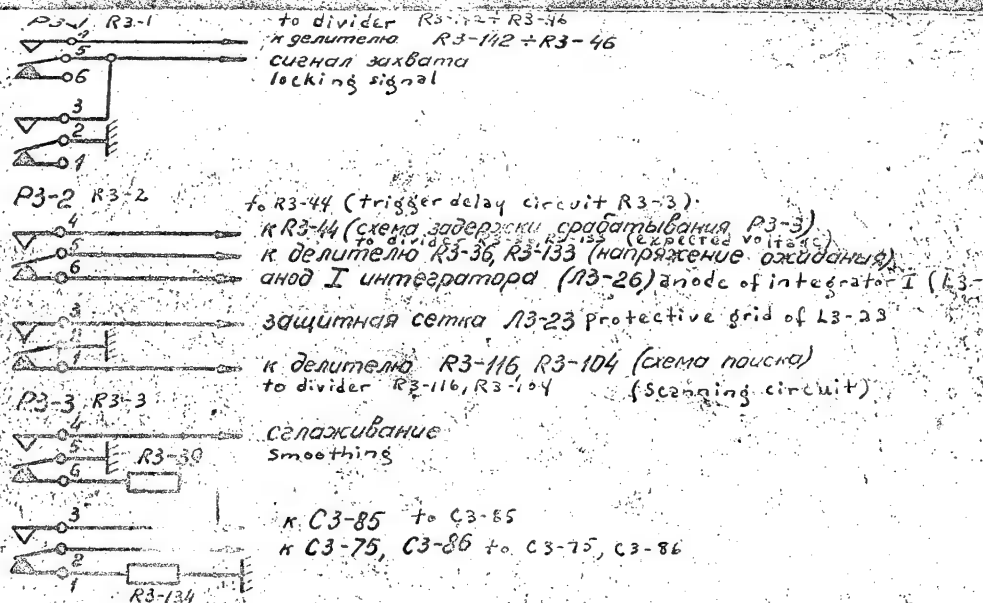 РЗ-1 R3-1
to divider R3-142÷R3-46
к делителю R3-142÷R3-46
5
сигнал захвата
6
locking signal
3
2
1
РЗ-2 R3-2
to R3-44 (trigger delay circuit R3-3).
4
к R3-44 (схема задержки срабатывания РЗ-3)
to divider R3-133 (expected voltage)
5
к делителю R3-36, R3-133 (напряжение ожидания)
6
анод I интегратора (Л3-26) anode of integrator I (L3-
3
защитная сетка Л3-23 protective grid of L3-23
1
к делителю R3-116, R3-104 (схема поиска)
to divider R3-116, R3-104 (Scanning circuit)
РЗ-3 R3-3
4
сглаживание
5
smoothing
6
3
к С3-85 to C3-85
к С3-75, С3-86 to C3-75, C3-86
2
1
R3-134